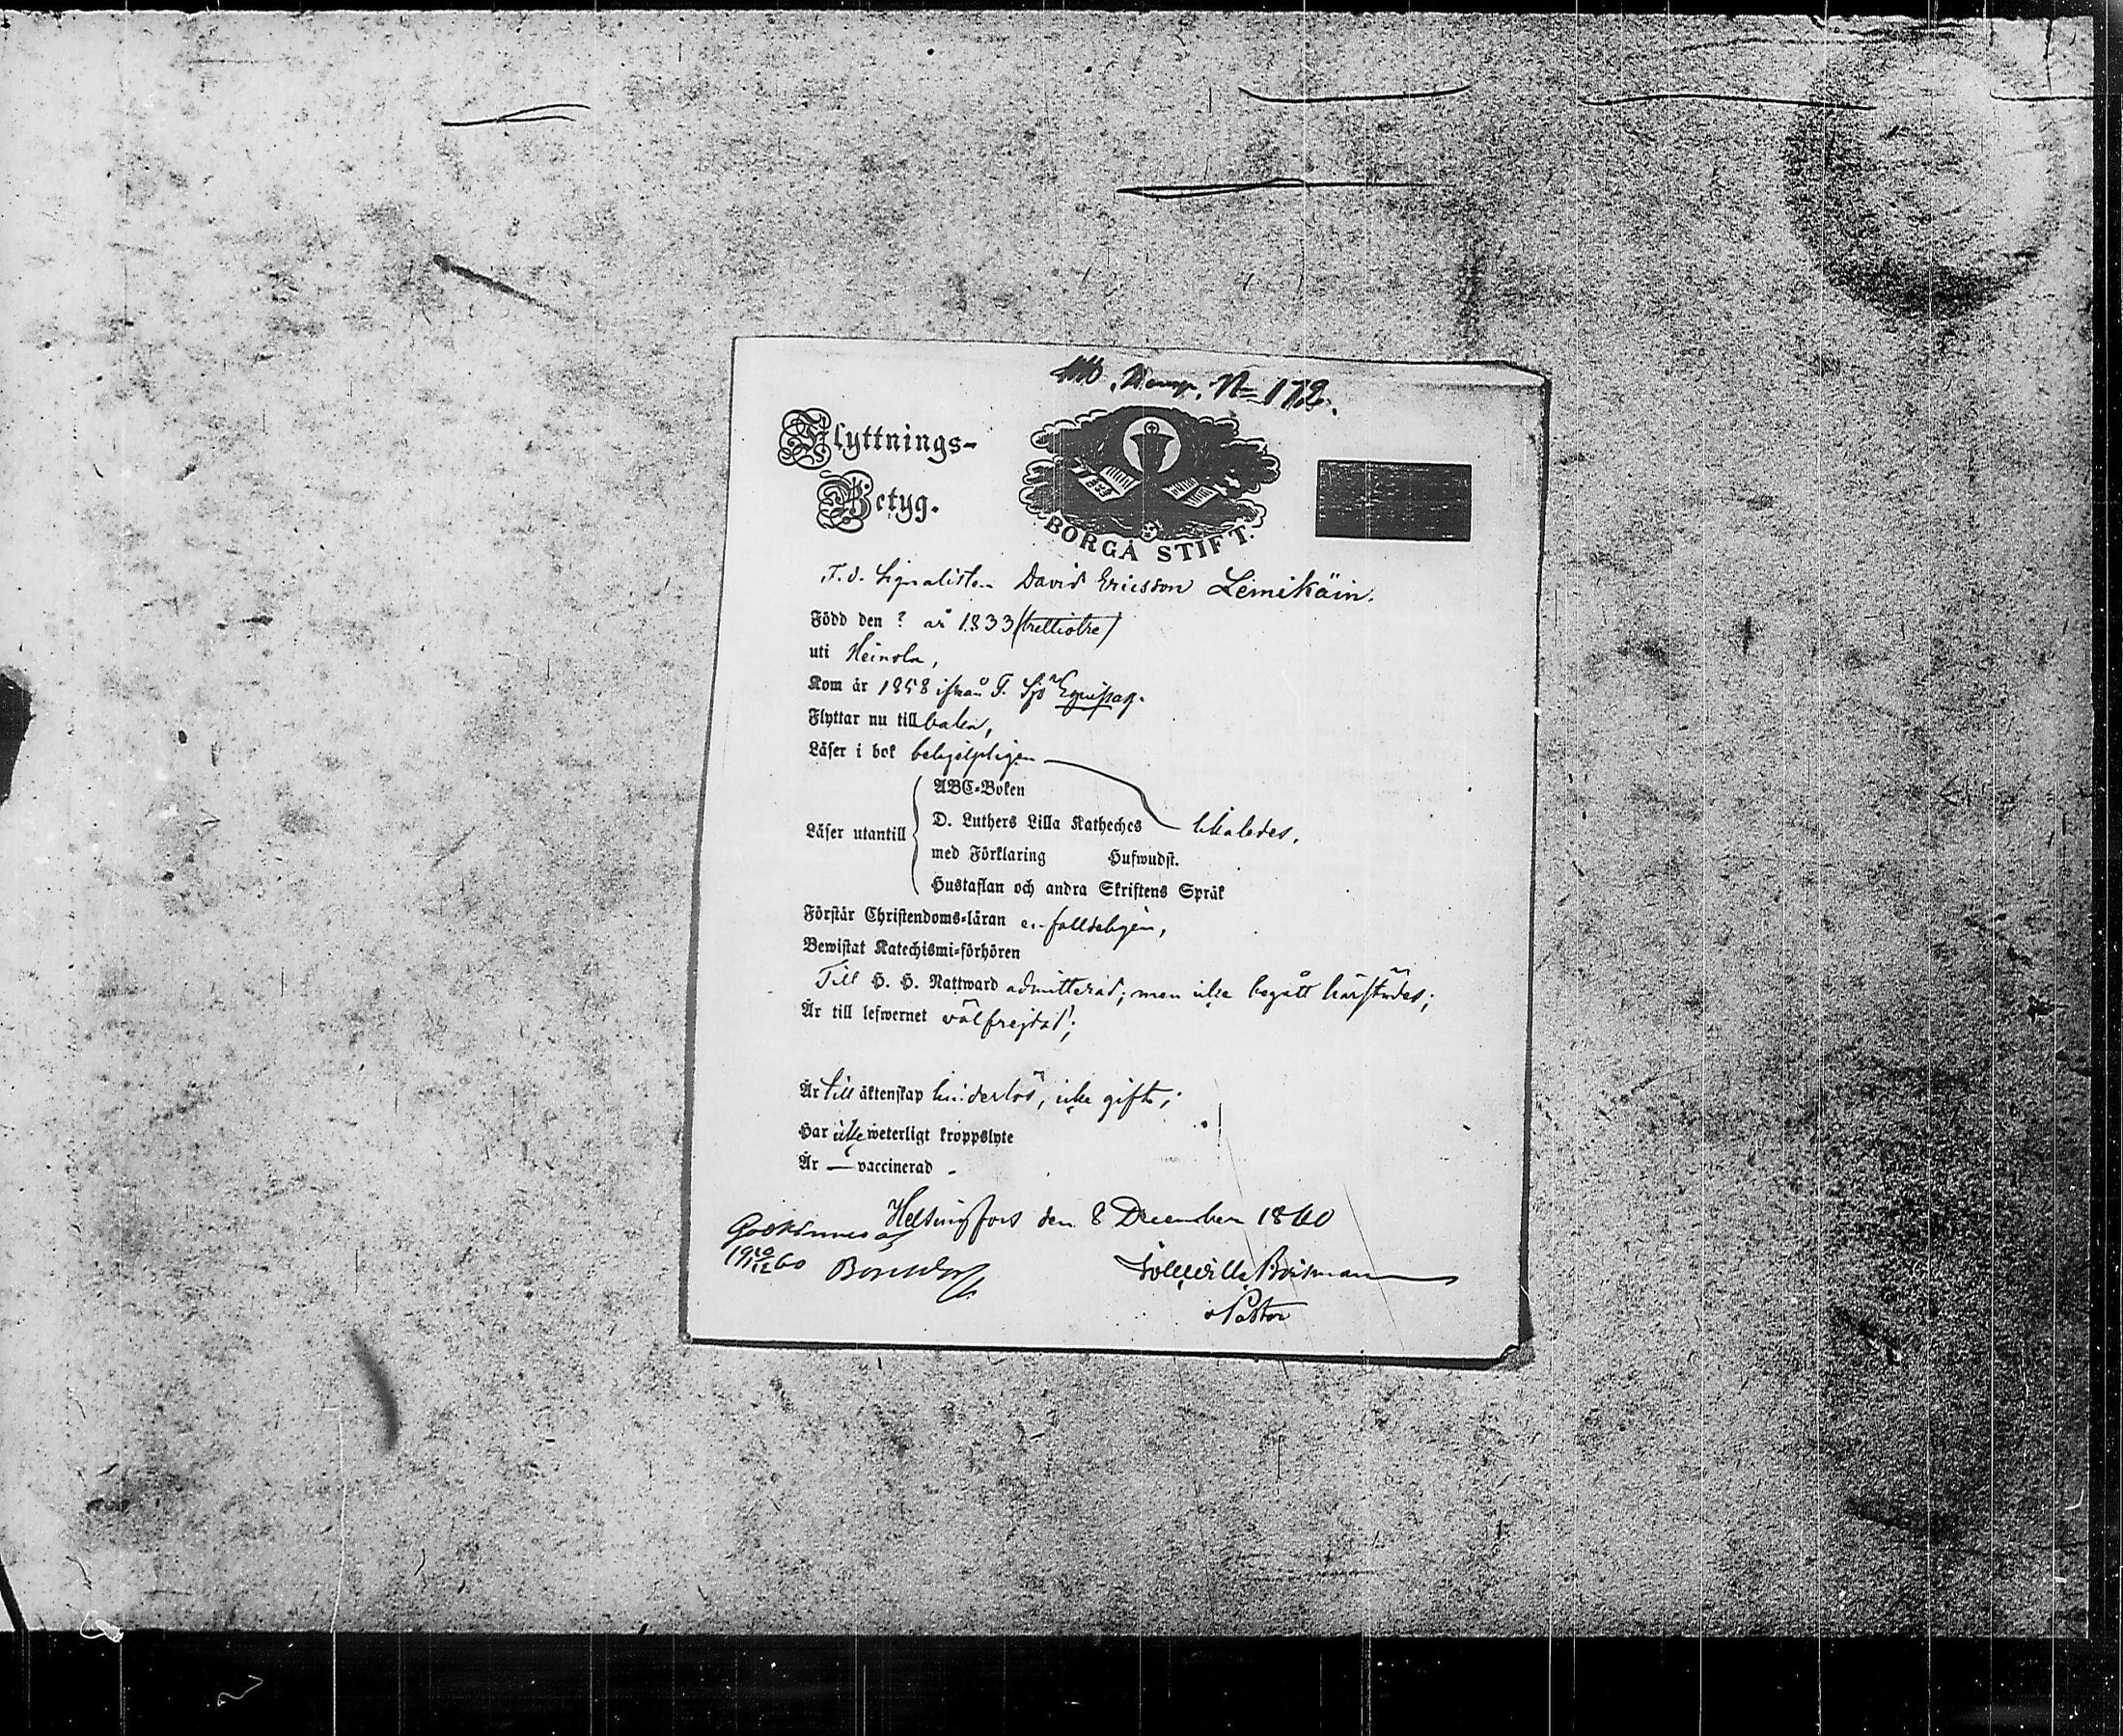 N= 172.
Flyttnings-
Betyg.
1858
BORGÅ STIFT.
F.d. Signalisten David Ericsson Lemikäin.
Född den ? år 1833 (trettiotre)
uti Heinola,
Kom år 1858 ifrån F. Sjö Equipag.
Flyttar nu till baka,
Läser i bok behjelpligen
ABC-Boken
D. Luthers Lilla Katheches likaledes.
Läser utantill
med Förklaring Hufwudst.
Hustaflan och andra Skriftens Språk
Förstår Christendoms-läran enfalldeligen,
Bewistat Katechismi-förhören
Till H. H. Nattward admitterad; men icke begått härstädes;
Är till lefwernet välfrejdad;
Är till äktenskap hinderlös, icke gift;
Har icke weterligt kroppslyte
Är — vaccinerad -
Helsingfors den 8 December 1860
Godkännes af
19 10/12 60
Boismann
Pastor